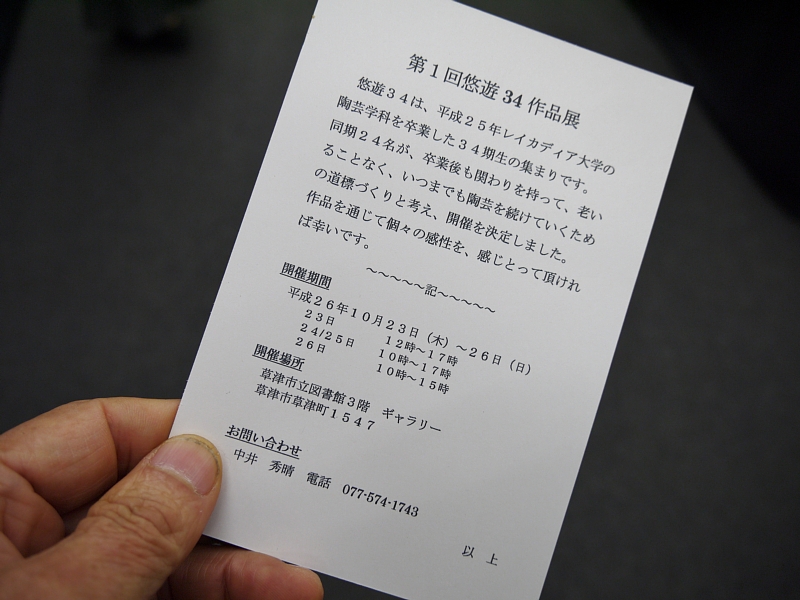 第1回悠遊34作品展
悠遊34は、平成25年レイカディア大学の
陶芸学科を卒業した34期生の集まりです。
同期24名が、卒業後も関わりを持って、老い
ることなく、いつまでも陶芸を続けていくため
の道標づくりと考え、開催を決定しました。
作品を通じて個々の感性を、感じとって頂けれ
ば幸いです。
~~~~~記~~~~~
開催期間
平成26年10月23日(木)~26日(日)
23日 12時~17時
24/25日 10時~17時
26日 10時~15時
開催場所
草津市立図書館3階 ギャラリー
草津市草津町1547
お問い合わせ
中井 秀晴 電話 077-574-1743
以上